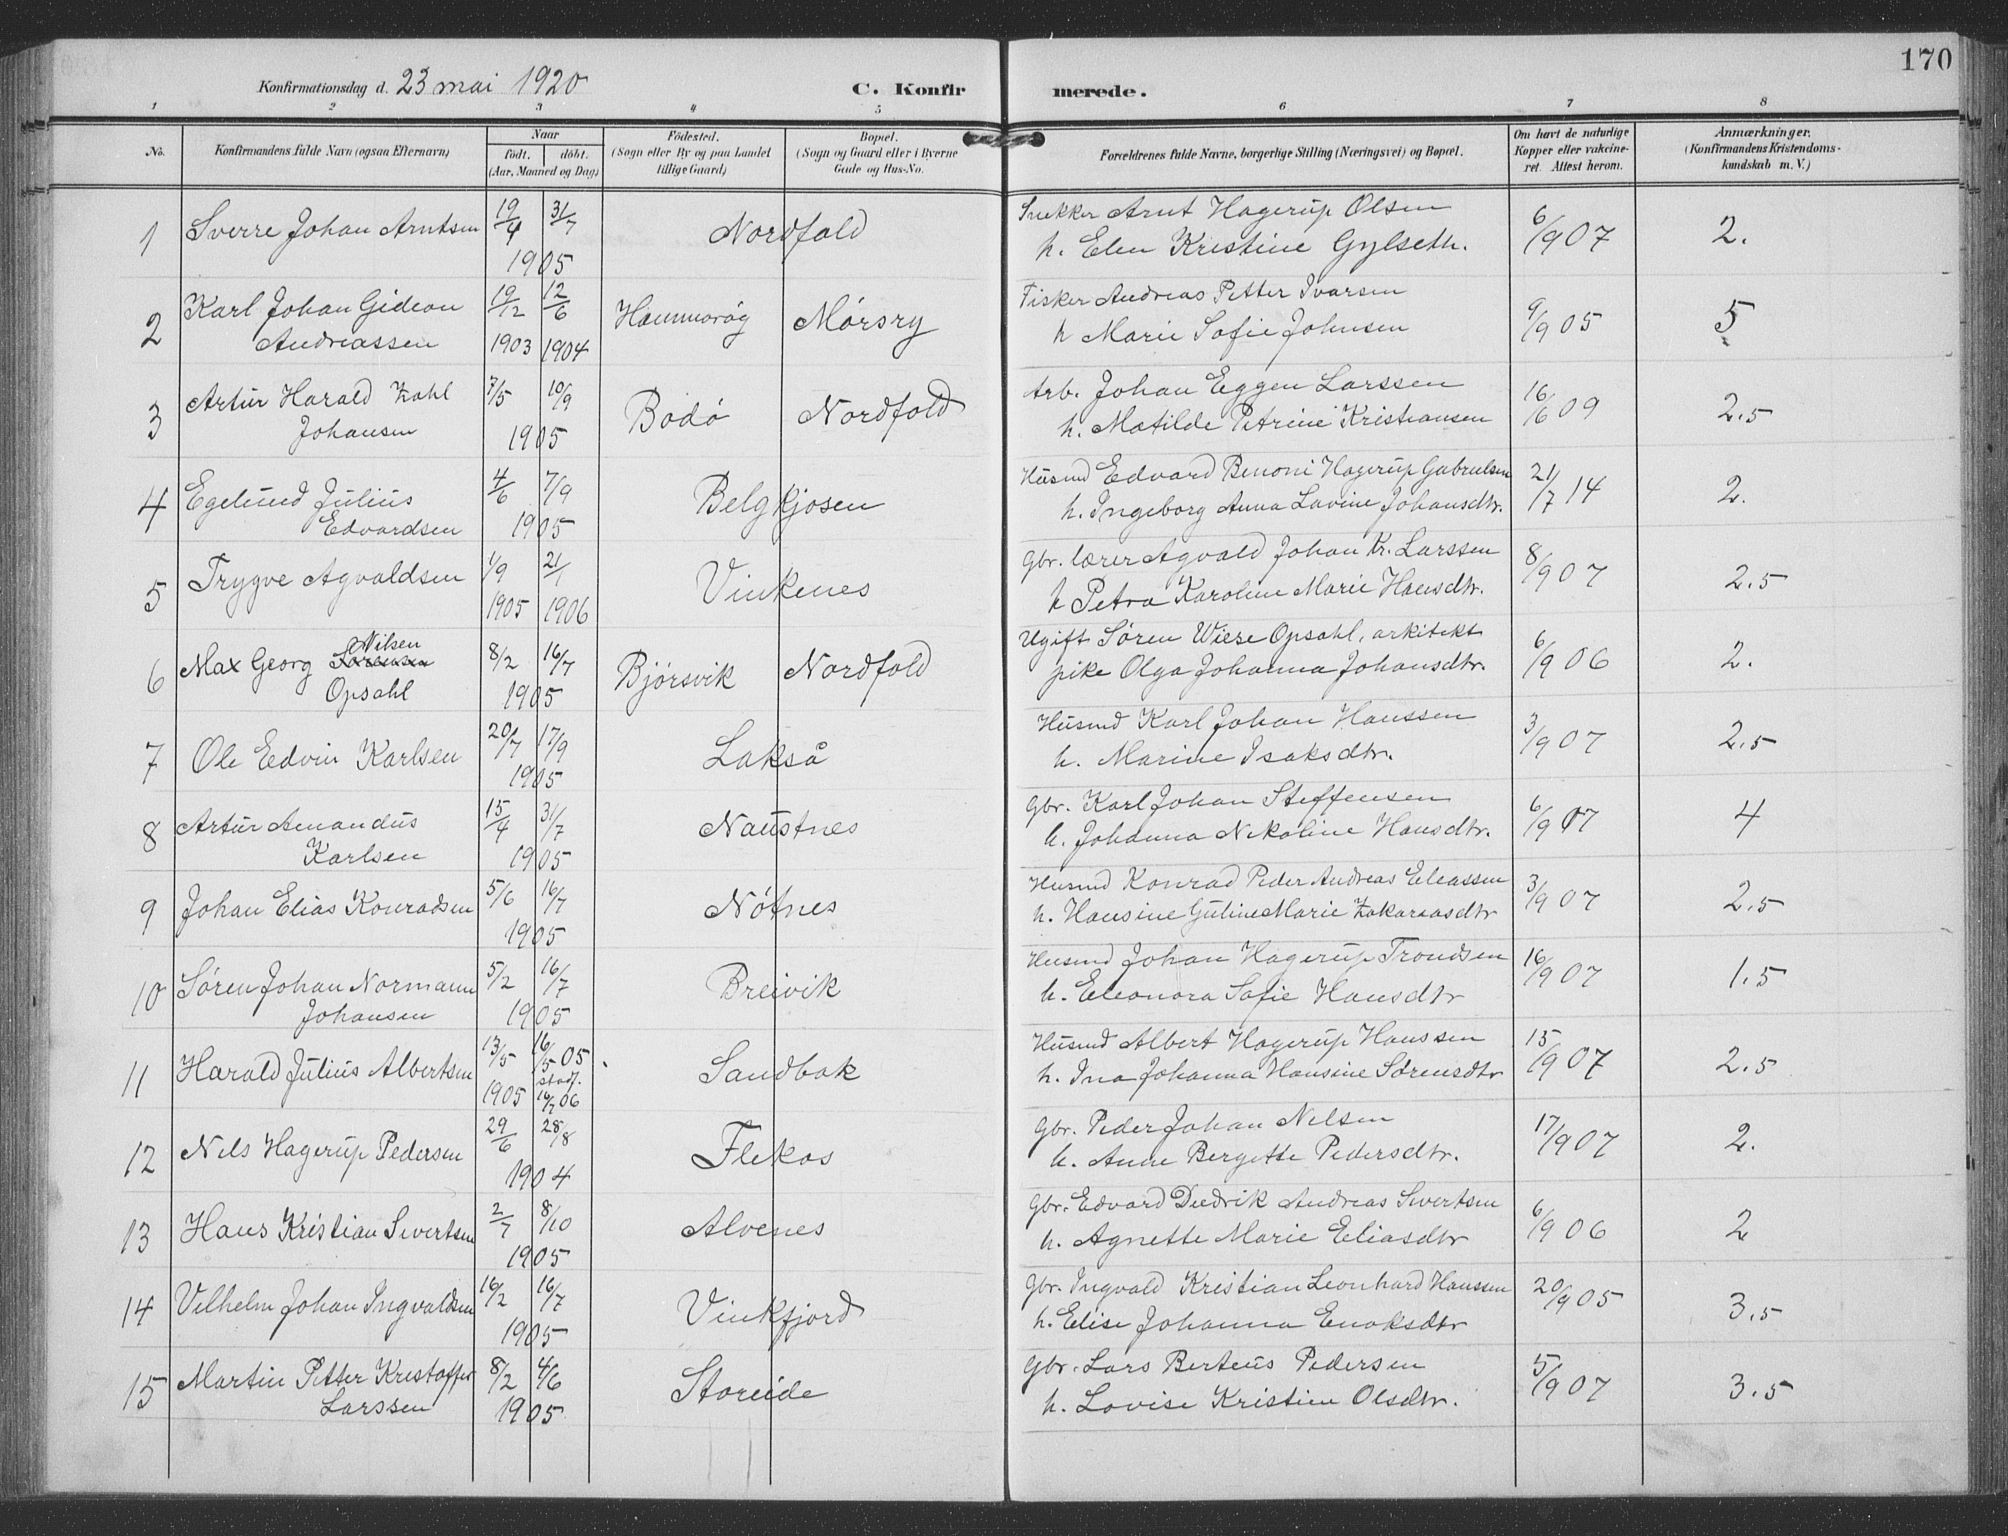 170
Konfirmationsdag d. 23 mai 1920
C. Konfirmerede.
1 2 3 4 5 6 7 8
No.
Konfirmandens fulde Navn (ogsaa Efternavn)
Naar
født. døbt.
(Aar, Maaned og Dag)
Fødested.
(Sogn eller By og paa Landet
tillige Gaard)
Bopæl.
(Sogn og Gaard eller i Byerne
Gade og Hus-No.
Forældrenes fulde Navne, borgerlige Stilling (Næringsvei) og Bopæl.
Om havt de naturlige
Kopper eller vakcine-
ret. Attest herom.
Anmærkninger.
(Konfirmandens Kristendoms-
kundskab m. V.)
1 Sverre Johan Arntsen 19/4 31/7 1905 Nordfold
Snekker Arnt Hagerup Olsen
h. Elen Kristine Gylseth. 6/9 07 2.
2 Karl Johan Gideon
Andreassen 19/12 1903 12/6 1904 Hammarøy Mørsry
Fisker Andreas Petter Ivarsen
h Marie Sofie Johnsen 9/9 05 5
3 Artur Harald Zahl
Johansen 7/5 10/9 1905 Bodø Nordfold
Arb. Johan Eggen Larssen
h. Matilde Petrine Kristiansen 16/6 09 2.5
4 Egelund Julius
Edvardsen 4/6 7/9 1905 Belgkjosen
Husmd Edvard Benoni Hagerup Gabrielsen
h. Ingeborg Anna Lovine Johansdtr. 21/7 14 2.
5 Trygve Agvaldsen 1/9 1905 21/1 1906 Vinkenes
Gbr. lærer Agvald Johan Kr. Larssen
h Petra Karoline Marie Hansdtr. 8/9 07 2.5
6 Max Georg Sørensen Nilsen
Opsahl 8/2 16/7 1905 Bjørsvik Nordfold
Ugift Søren Wiese Opsahl, arkitekt
pike Olga Johanna Johansdtr. 6/9 06 2.
7 Ole Edvin Karlsen 20/7 17/9 1905 Lakså
Husmd Karl Johan Hanssen
h. Marine Isaksdtr. 3/9 07 2.5
8 Artur Amandus
Karlsen 15/4 31/7 1905 Naustnes
Gbr. Karl Johan Steffensen
h. Johanna Nikoline Hansdtr. 6/9 07 4
9 Johan Elias Konradsen 5/6 16/7 1905 Nøtnes
Husmd Konrad Peder Andreas Eleassen
h. Hansine Gutine Marie Zakariasdtr 3/9 07 2.5
10 Søren Johan Normann
Johansen 5/2 16/7 1905 Breivik
Husmd Johan Hagerup Trondsen
h. Eleonora Sofie Hansdtr 16/9 07 1.5
11 Harald Julius Albertsen 13/5 1905 16/5 05 stadf. 16/7 06 Sandbak
Husmd Albert Hagerup Hanssen
h. Ina Johanna Hansine Sørensdtr 15/9 07 2.5
12 Nils Hagerup Pedersen 29/6 28/8 1904 Flekas
Gbr. Peder Johan Nilsen
h. Anne Bergette Pedersdtr. 17/9 07 2.
13 Hans Kristian Sivertsen 2/7 8/10 1905 Alvenes
Gbr. Edvard Diedrik Andreas Sivertsen
h. Agnette Marie Eliasdtr 6/9 06 2
14 Vilhelm Johan Ingvaldsen 16/2 16/7 1905 Vinkfjord
Gbr. Ingvald Kristian Leonhard Hanssen
h. Elise Johanna Enoksdtr 20/9 05 3.5
15 Martin Petter Kristoffer
Larssen 8/2 4/6 1905 Storeide
Gbr. Lars Berteus Pedersen
h. Lovise Kristine Olsdtr. 5/9 07 3.5